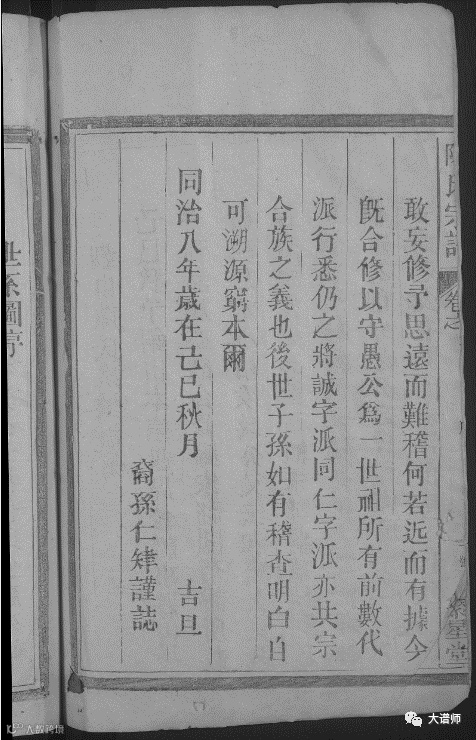 陳氏宗譜
卷之
敢妄修予思遠而難稽何若近而有據今
旣合修以守愚公爲一世祖所有前數代
派行悉仍之將誠字派同仁字派亦共宗
合族之義也後世子孫如有稽查明白自
可溯源窮本爾
同治八年歲在己巳秋月 吉旦
裔孫仁𤜶謹誌
世系圖序
大谱师